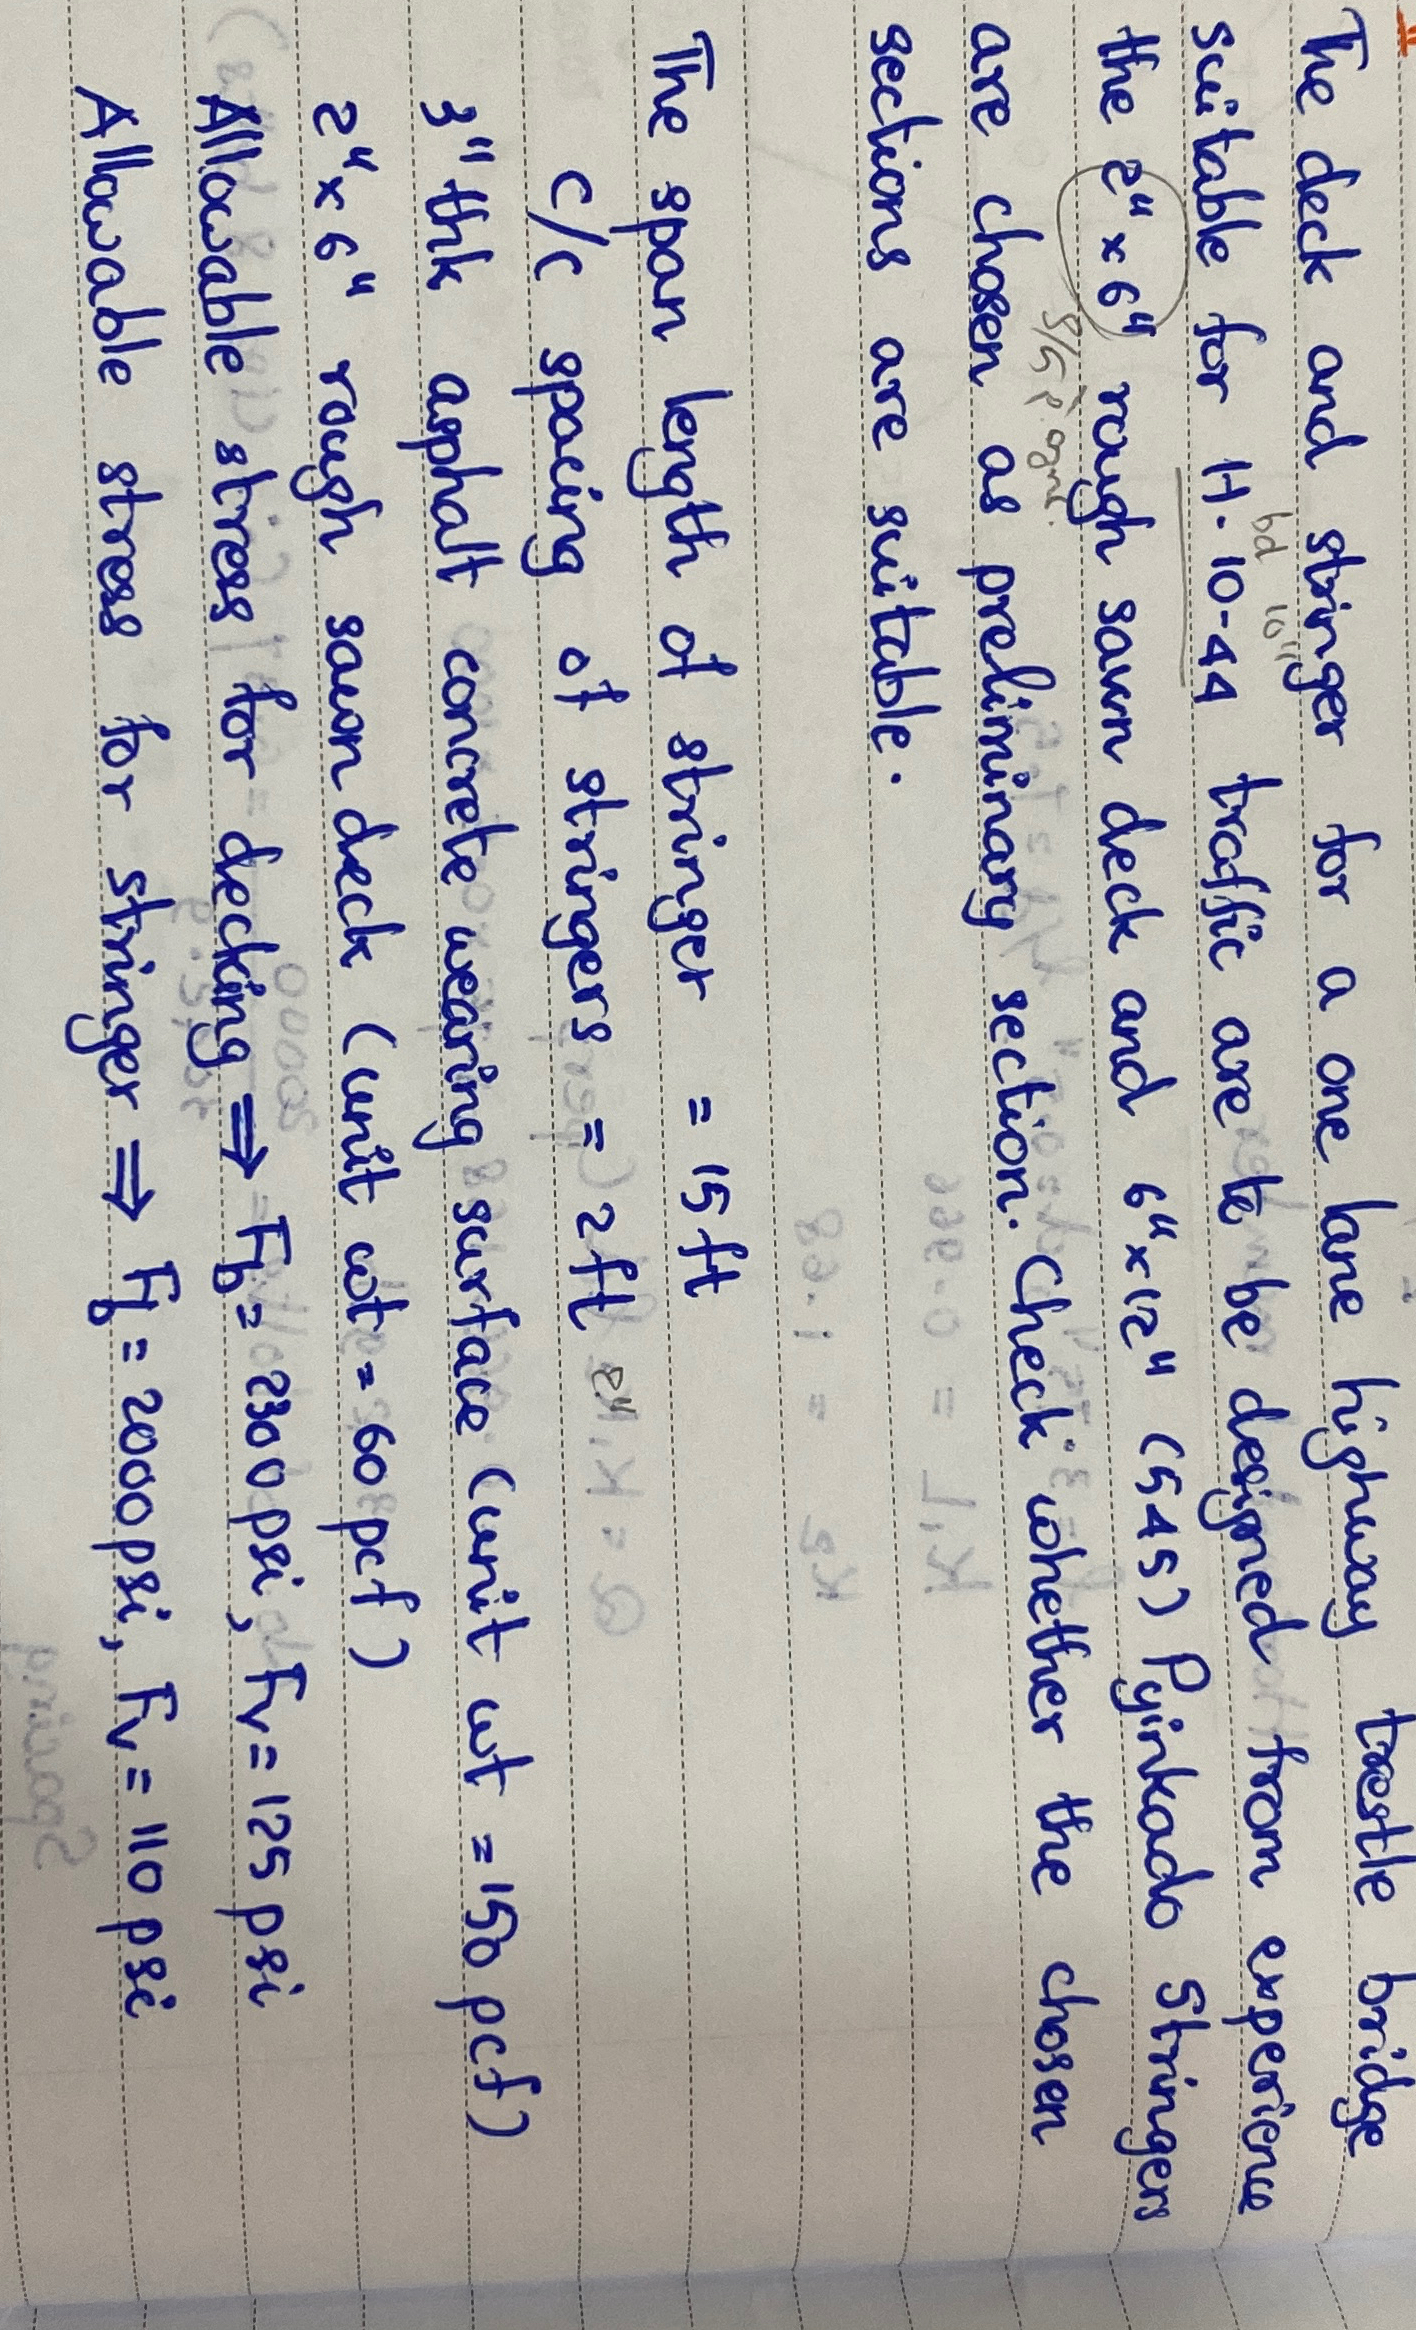 The deck and stringer for a one lane highway trestle bridge
bd 10"
suitable for H.10-44 traffic are to be designed from experience
the 2" x 6" rough sawn deck and 6" x 12" (S4S) Pyinkado Stringers
are chosen as preliminary section. Check whether the chosen
sections are suitable.
The span length of stringer = 15 ft
c/c spacing of stringers = 2 ft
3" thk asphalt concrete wearing surface (unit wt = 150 pcf)
2" x 6" rough sawon deck (unit wt = 60 pcf)
Allowable stress for decking ⇒ Fb = 2300 psi, Fv = 125 psi
Allowable stress for stringer ⇒ Fb = 2000 psi, Fv = 110 psi